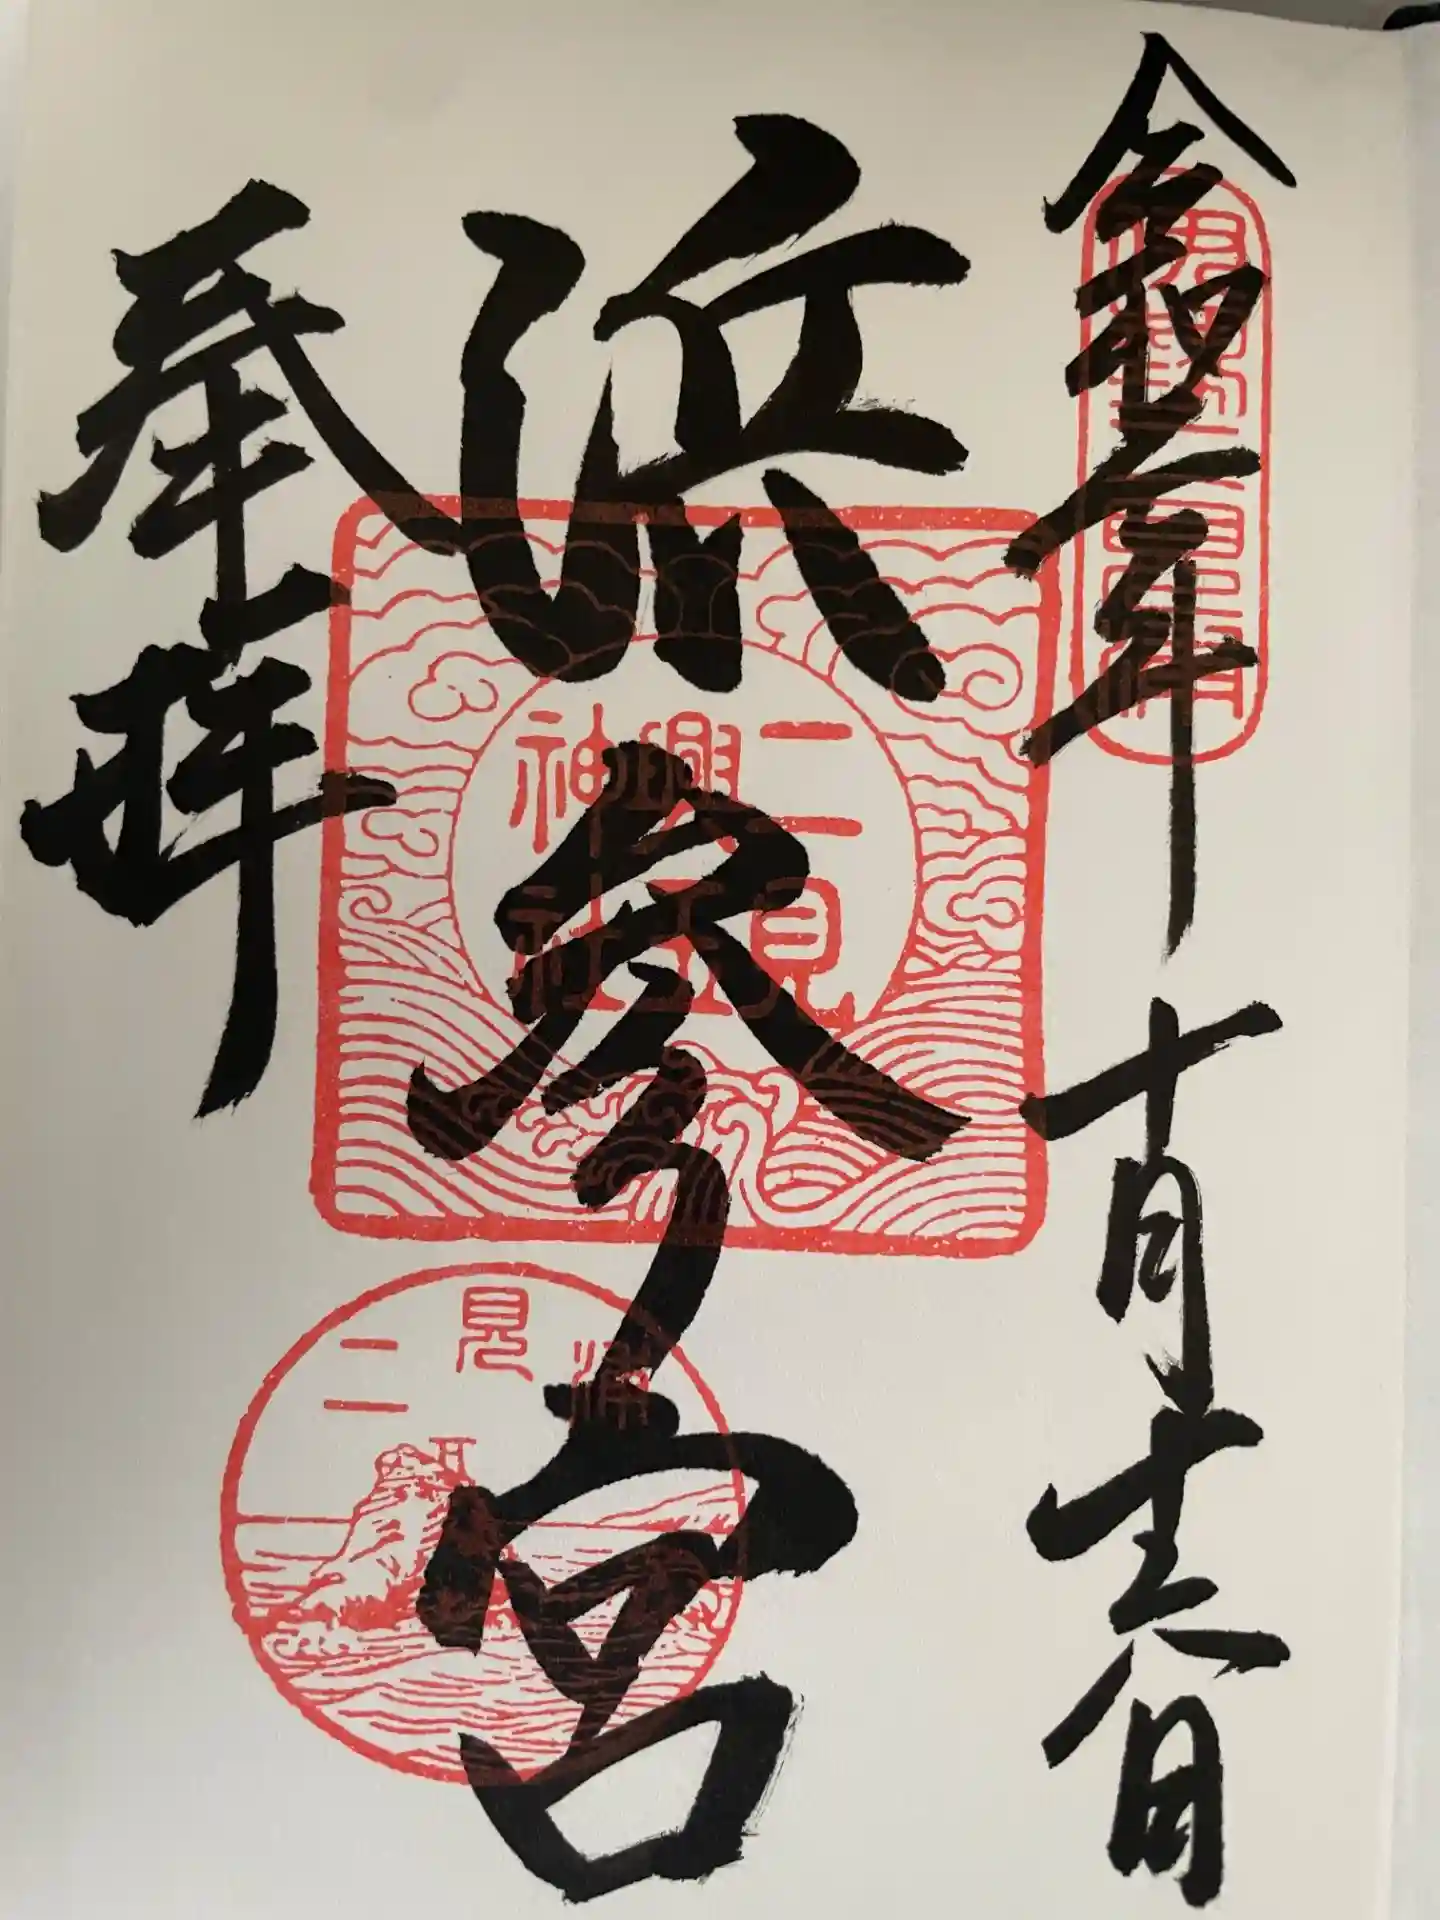 伊勢二見浦
令和 年 十月十六日
浜参宮
二見
興玉
神社
奉拝
二見浦